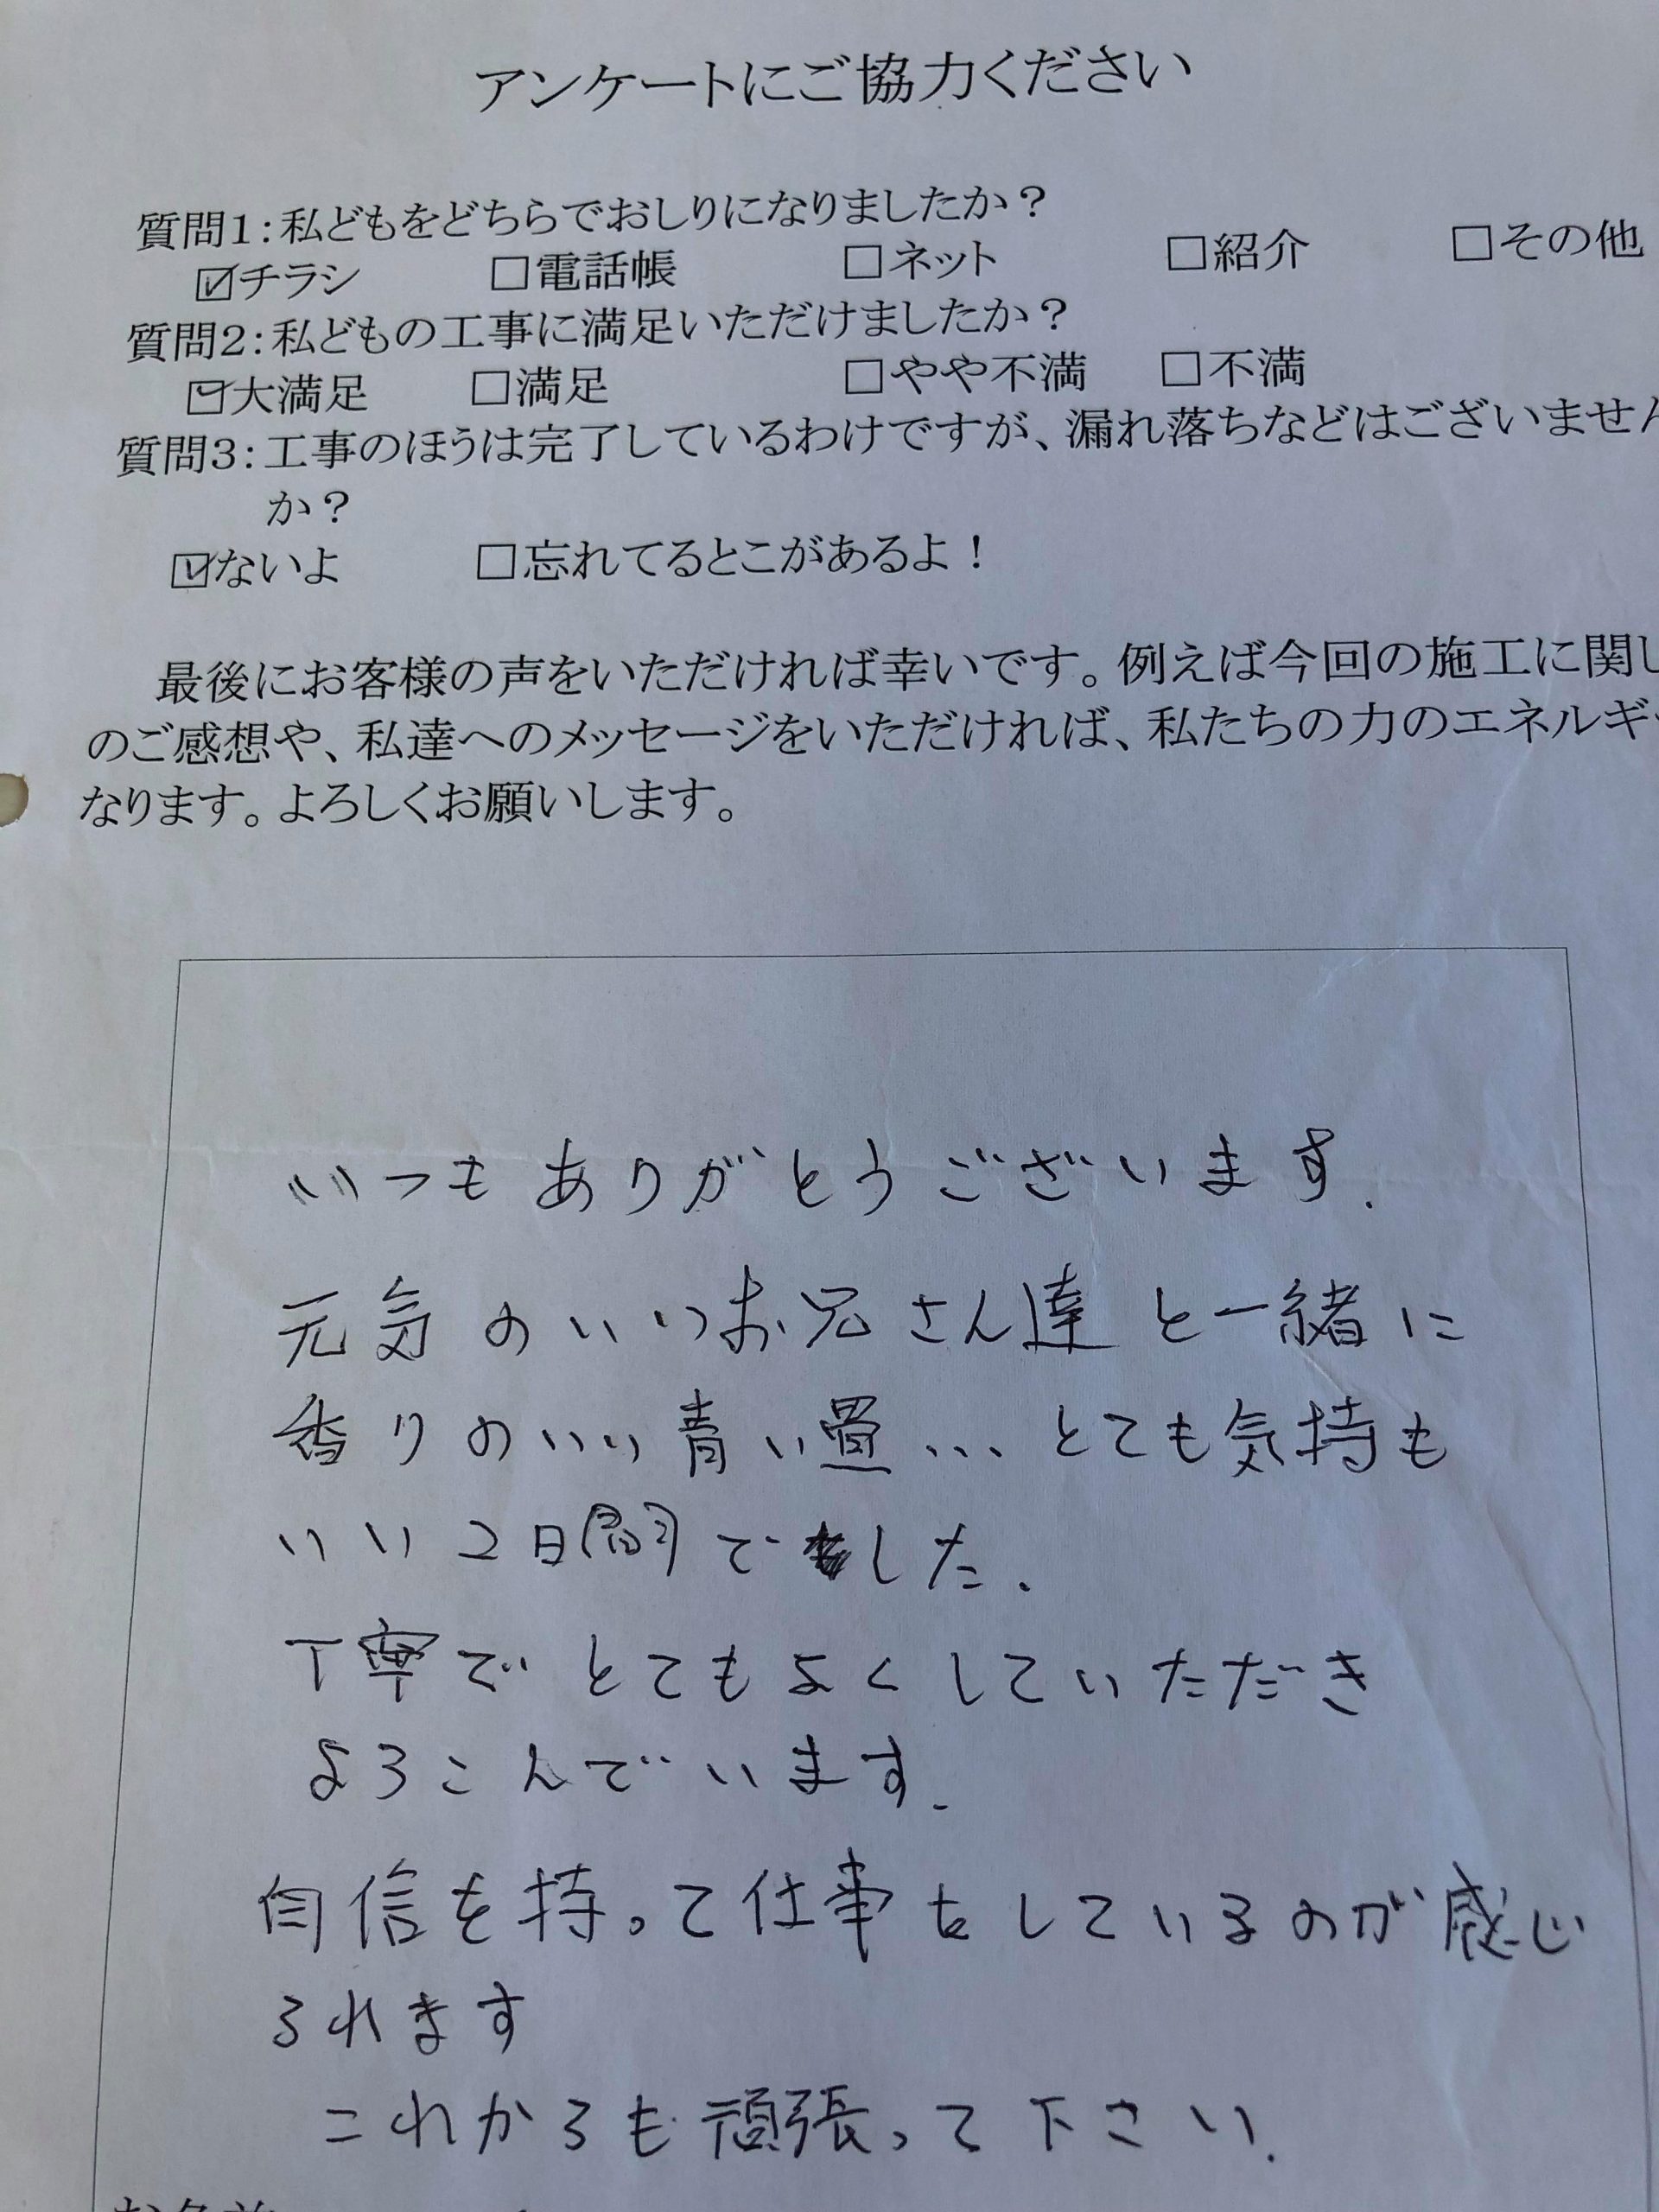 アンケートにご協力ください
質問1:私どもをどちらでおしりになりましたか？
☑チラシ □電話帳 □ネット □紹介 □その他
質問2:私どもの工事に満足いただけましたか？
☑大満足 □満足 □やや不満 □不満
質問3:工事のほうは完了しているわけですが、漏れ落ちなどはございません
か？
☑ないよ □忘れてるとこがあるよ！
最後にお客様の声をいただければ幸いです。例えば今回の施工に関し
のご感想や、私達へのメッセージをいただければ、私たちの力のエネルギ
なります。よろしくお願いします。
いつもありがとうございます.
元気のいいお兄さん達と一緒に
香りのいい青い畳...とても気持も
いい2日間でした.
丁寧でとてもよくしていただき
よろこんでいます.
自信を持って仕事をしているのが感じ
られます
これからも頑張って下さい.